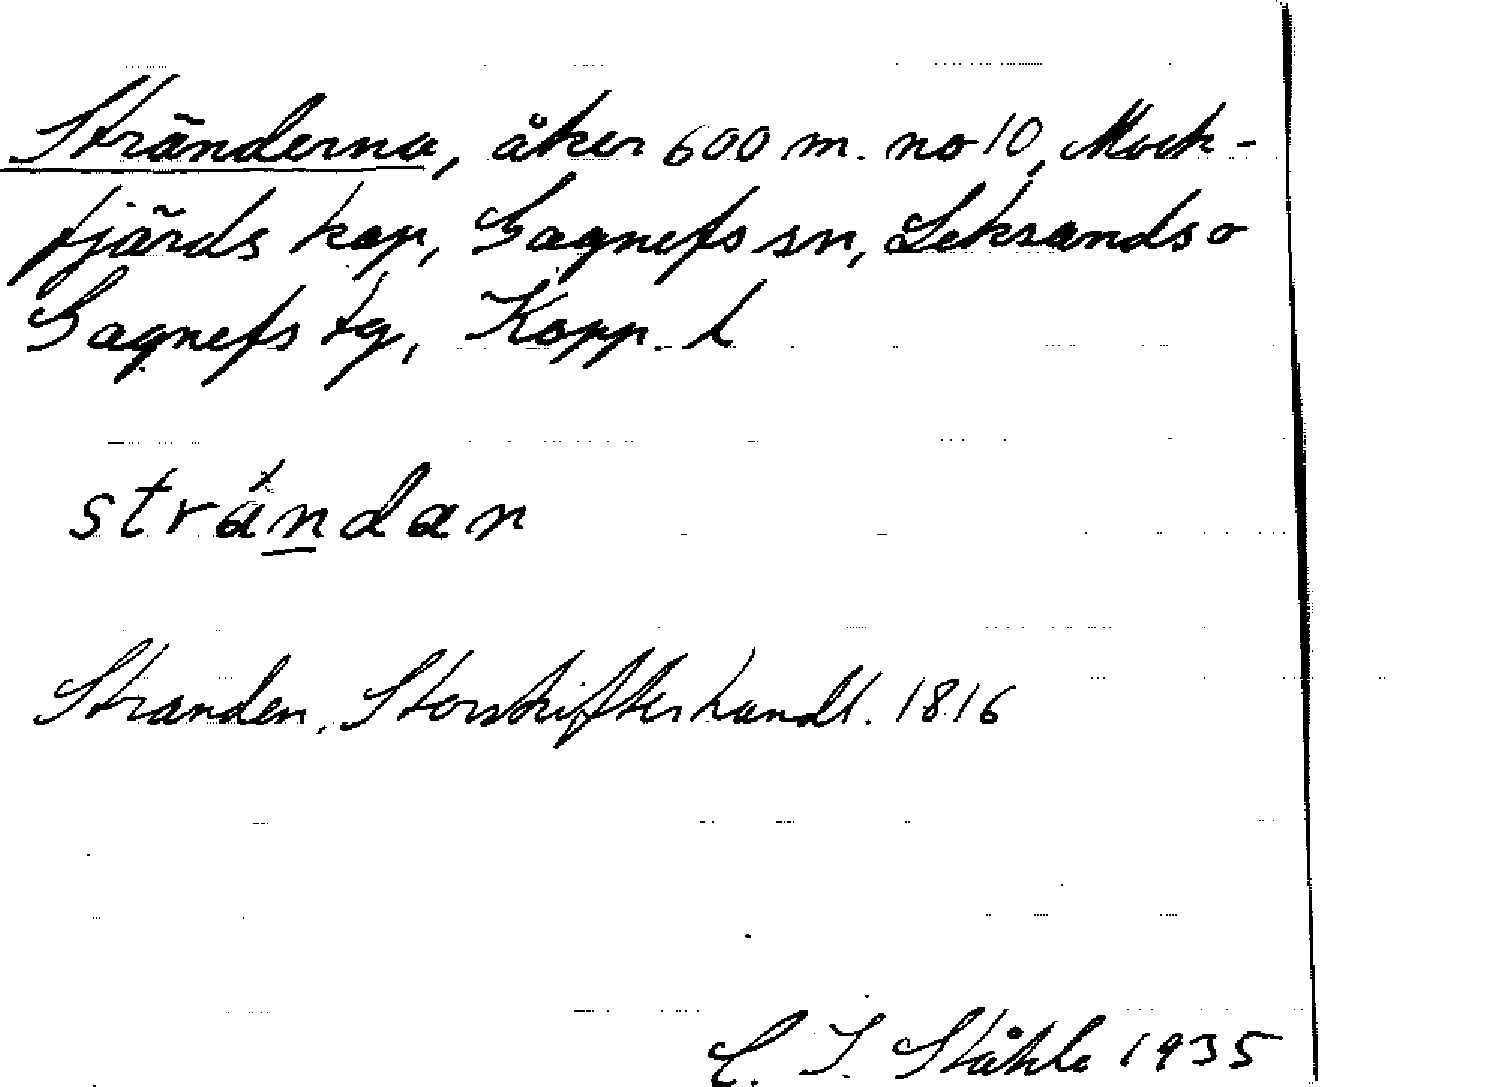 Stränderna, åker 600 m. no 10, Mock-
fjärds kap, Gagnefs sn, Leksands o
Gagnefs tg, Kopp. l
strándan
Stranden, Storskifteshandl. 1816
C. I. Ståhle 1935